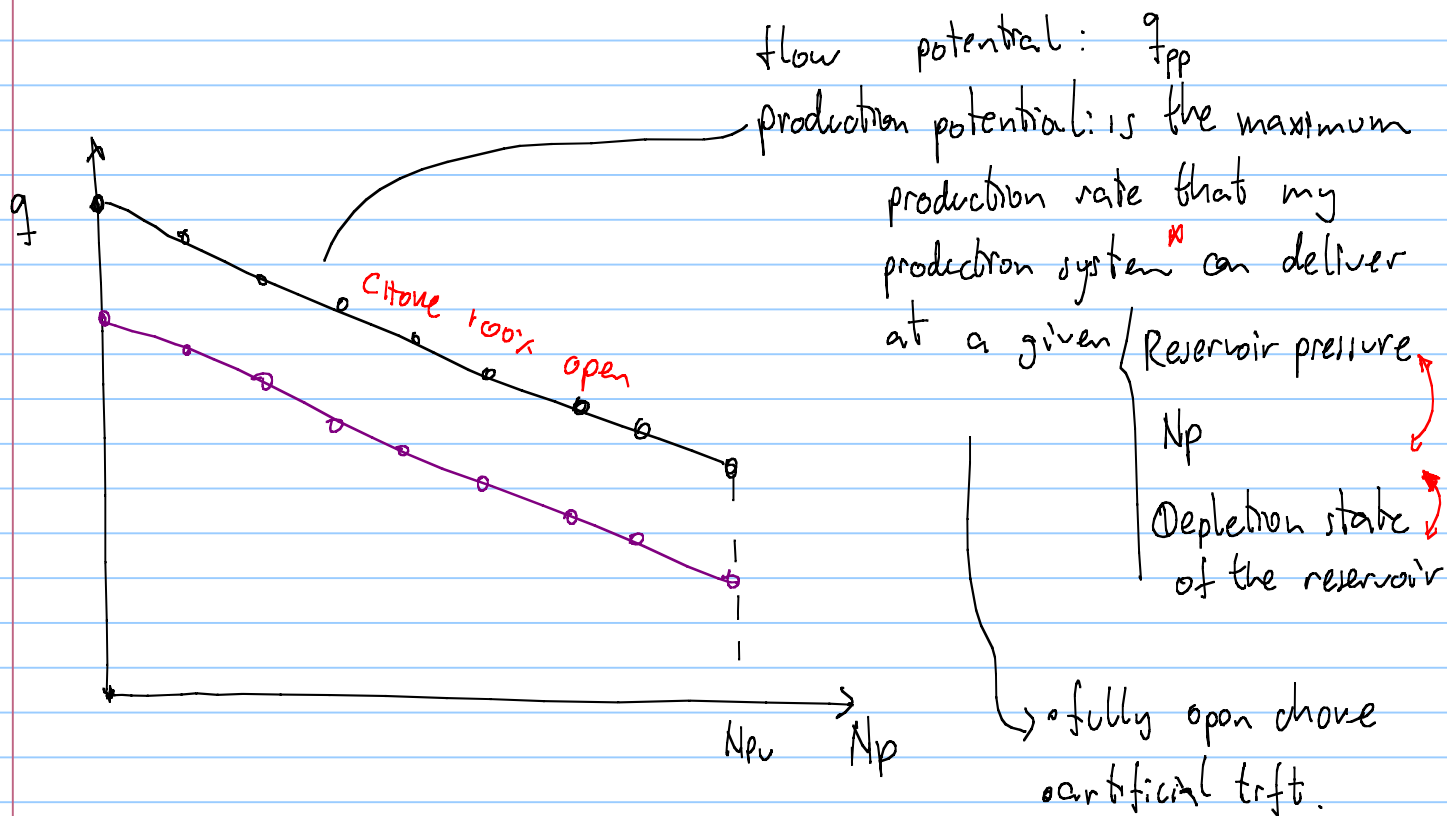 flow potential: qpp
production potential: is the maximum
production rate that my
production system* can deliver
at a given
Reservoir pressure
Np
Depletion state
of the reservoir
q
Choke 100% open
Npu
Np
• fully open choke
• artificial lift.